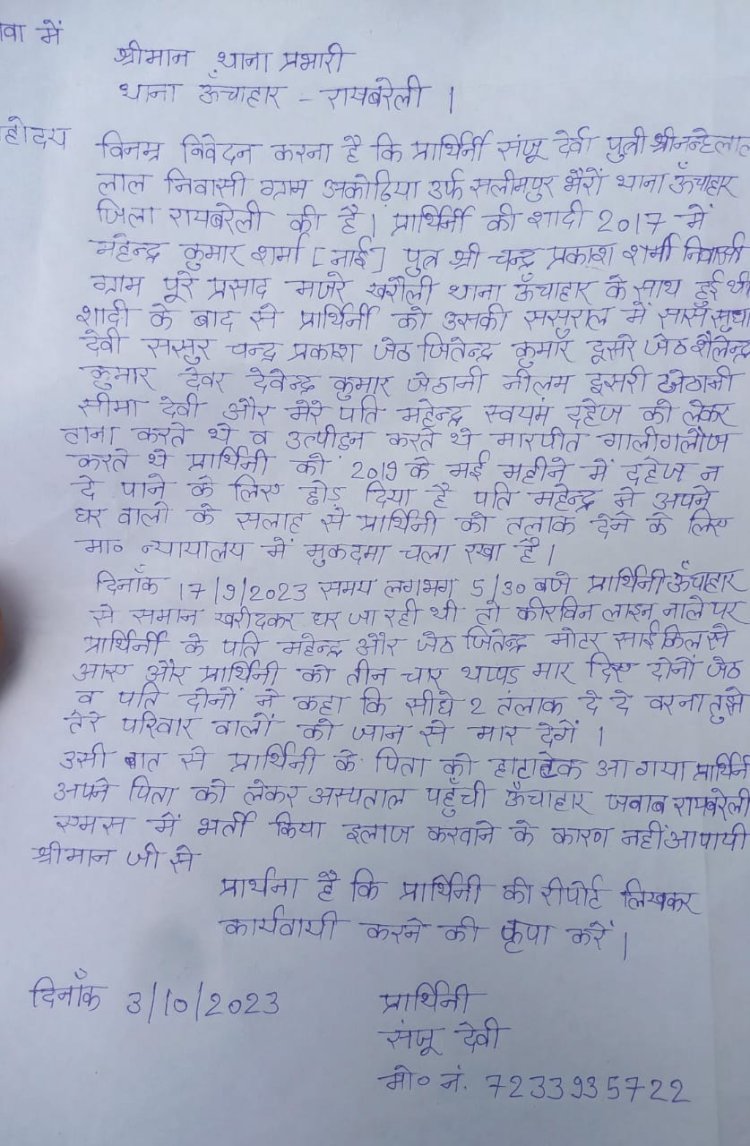 वा में
श्रीमान थाना प्रभारी
थाना ऊँचाहार - रायबरेली ।
होदय विनम्र निवेदन करना है कि प्रार्थिनी संजू देवी पुत्री श्री नन्हेलाल
लाल निवासी ग्राम अकोढ़िया उर्फ सलीमपुर भैरों थाना ऊँचाहार
जिला रायबरेली की है। प्रार्थिनी की शादी 2017 में
महेन्द्र कुमार शर्मा [नाई] पुत्र श्री चन्द्र प्रकाश शर्मा निवासी
ग्राम पूरे प्रसाद मजरे खरौली थाना ऊँचाहार के साथ हुई थी
शादी के बाद से प्रार्थिनी को उसकी ससुराल में सास सुधा
देवी ससुर चन्द्र प्रकाश जेठ जितेन्द्र कुमार दूसरे जेठ शैलेन्द्र
कुमार देवर देवेन्द्र कुमार जेठानी नीलम दूसरी जेठानी
सीमा देवी और मेरे पति महेन्द्र स्वयम दहेज को लेकर
ताना करते थे व उत्पीड़न करते थे मारपीत गालीगलौज
करते थे प्रार्थिनी को 2019 के मई महीने में दहेज न
दे पाने के लिए छोड़ दिया है पति महेन्द्र ने अपने
घर वालो के सलाह से प्रार्थिनी को तलाक देने के लिए
मा० न्यायालय में मुकदमा चला रखा है।
दिनाँक 17/9/2023 समय लगभग 5/30 बजे प्रार्थिनी ऊँचाहार
से समान खरीदकर घर जा रही थी तो कीरविन लाइन नाले पर
प्रार्थिनी के पति महेन्द्र और जेठ जितेन्द्र मोटर साईकिल से
आए और प्रार्थिनी को तीन चार थप्पड़ मार दिए दोनों जेठ
व पति दोनों ने कहा कि सीधे 2 तलाक दे दे वरना तुझे
तेरे परिवार वालों को जान से मार देगें ।
उसी बात से प्रार्थिनी के पिता को हाटाटेक आ गया प्रार्थिनी
अपने पिता को लेकर अस्पताल पहुँची ऊँचाहार जवाब रायबरेली
एमस में भर्ती किया इलाज करवाने के कारण नहीं आ पायी
श्रीमान जी से
प्रार्थना है कि प्रार्थिनी की रीपोर्ट लिखकर
कार्यवायी करने की कृपा करें।
दिनाँक 3/10/2023
प्रार्थिनी
संजू देवी
मो० नं. 7233935722